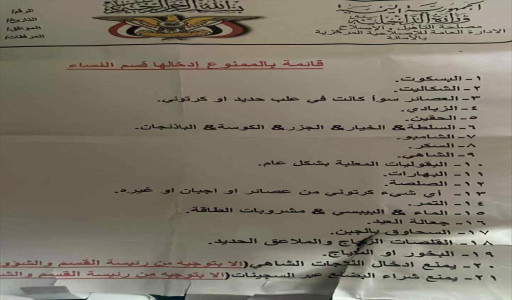 الرقم/
التاريخ/
الموافق/
المرفقات/
وزارة الداخلية
مصلحة التأهيل والإصلاح
الادارة العامة للإصلاحية المركزية
بالأمانة
قائمة بالممنوع إدخالها قسم النساء
١- البسكوت.
٢- الشكاليت.
٣- العصائر سوأ كانت في علب حديد او كرتوني.
٤- الزبادي.
٥- الحقين.
٦- السلطة& الخيار& الجزر& الكوسة& الباذنجان.
٧- الشامبو.
٨- السكر.
٩- الشاهي.
١٠- البقوليات المعلبة بشكل عام.
١١- البهارات.
١٢- الصلصة.
١٣- أي شيء كرتوني من عصائر او اجبان او غيره.
١٤- التمر.
١٥- الماء & البيبسي & مشروبات الطاقة.
١٦- جعالة العيد.
١٧- السحاوق بالجبن.
١٨- القلصات الزجاج والملاعق الحديد.
١٩- البخور او
٢٠- يمنع ادخال الثلاجات الشاهي(إلا بتوجيه من رئيسة القسم
٢١- يمنع شراء البضائع عبر السجينات(إلا بتوجيه من رئيسة القسم